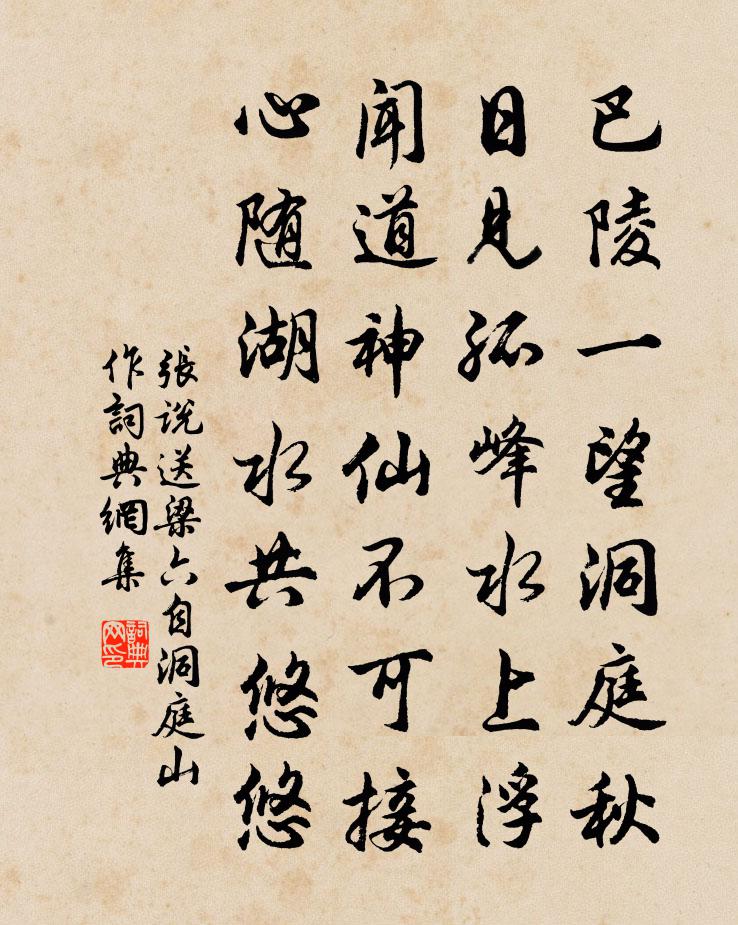 巴陵一望洞庭秋
日見孤峰水上浮
闻道神仙不可接
心随湖水共悠悠
張說送梁六自洞庭山
作詞典網集
詞典
网印